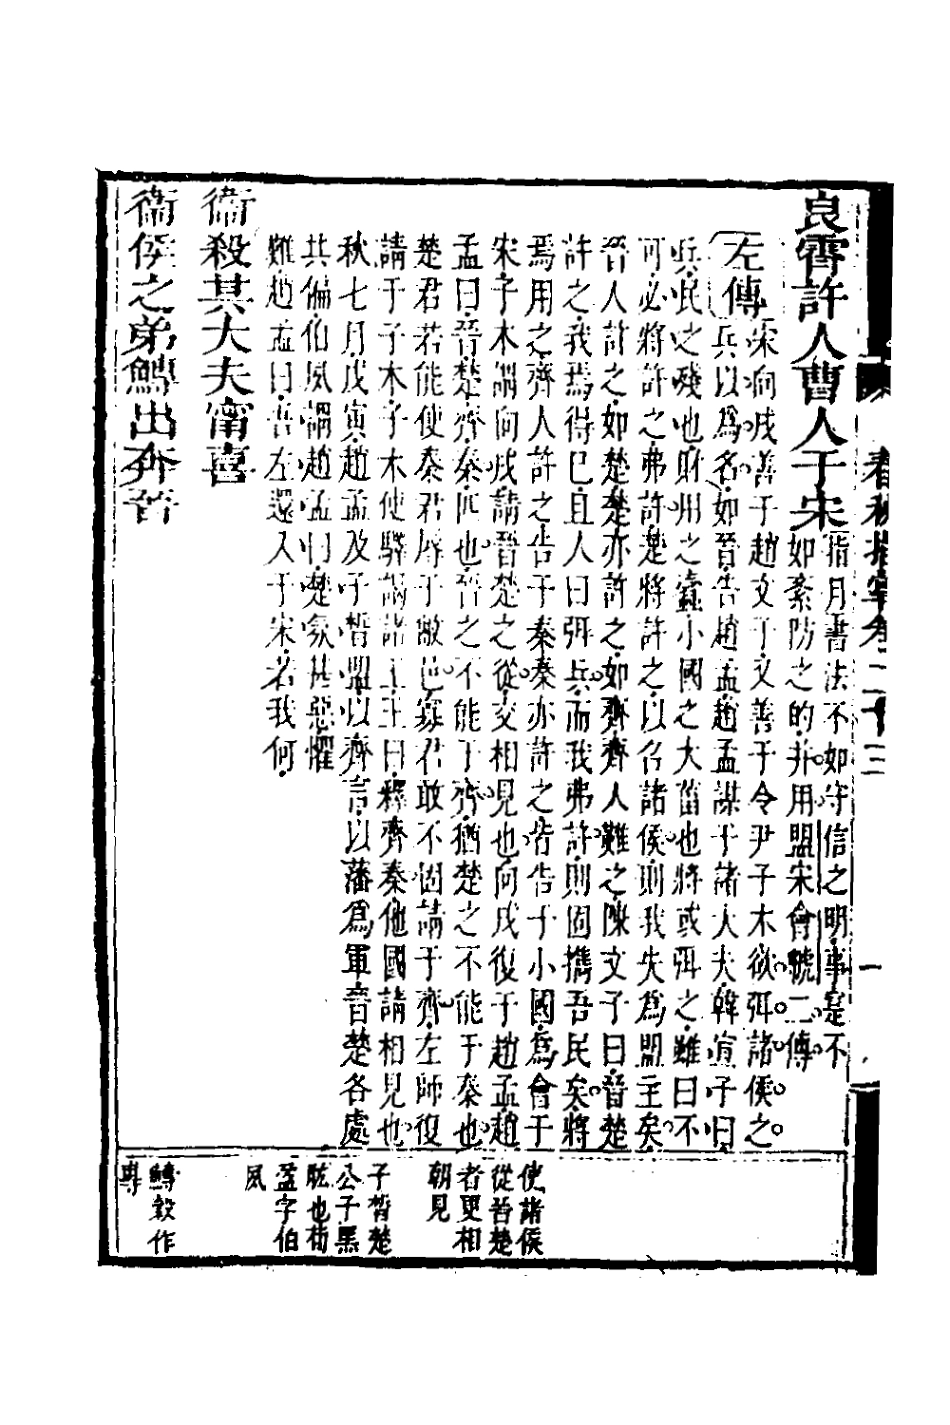 良霄許人曹人于宋
指月書法不如守信之明事是不
如紊防之的并用盟宋會虢二傳
左傳
宋向戌善于趙文子又善于令尹子木欲弭諸侯之
兵以爲名如晉告趙孟趙孟謀于諸大夫韓宣子曰
兵民之殘也財用之蠹小國之大菑也將或弭之雖曰不
可必將許之弗許楚將許之以召諸侯則我失爲盟主矣
晉人許之如楚楚亦許之如齊齊人難之陳文子曰晉楚
許之我焉得已且人曰弭兵而我弗許則固攜吾民矣將
焉用之齊人許之告于秦秦亦許之皆告于小國爲會于
宋子木謂向戌請晉楚之從交相見也向戌復于趙孟趙
孟曰晉楚齊秦匹也晉之不能于齊猶楚之不能于秦也
楚君若能使秦君辱于敝邑寡君敢不固請于齊左師復
請于子木子木使驛謁諸王王曰釋齊秦他國請相見也
秋七月戊寅趙孟及子晳盟以齊言以藩爲軍晉楚各處
共偏伯夙謂趙孟曰楚氛甚惡懼
難趙孟曰吾左還入于宋若我何
衞殺其大夫甯喜
衞侯之弟鱄出奔晉
春秋指掌卷二十三
一
使諸侯
從晉楚
者更相
朝見
子晳楚
公子黑
肱也荀
盈字伯
夙
鱄穀作
專